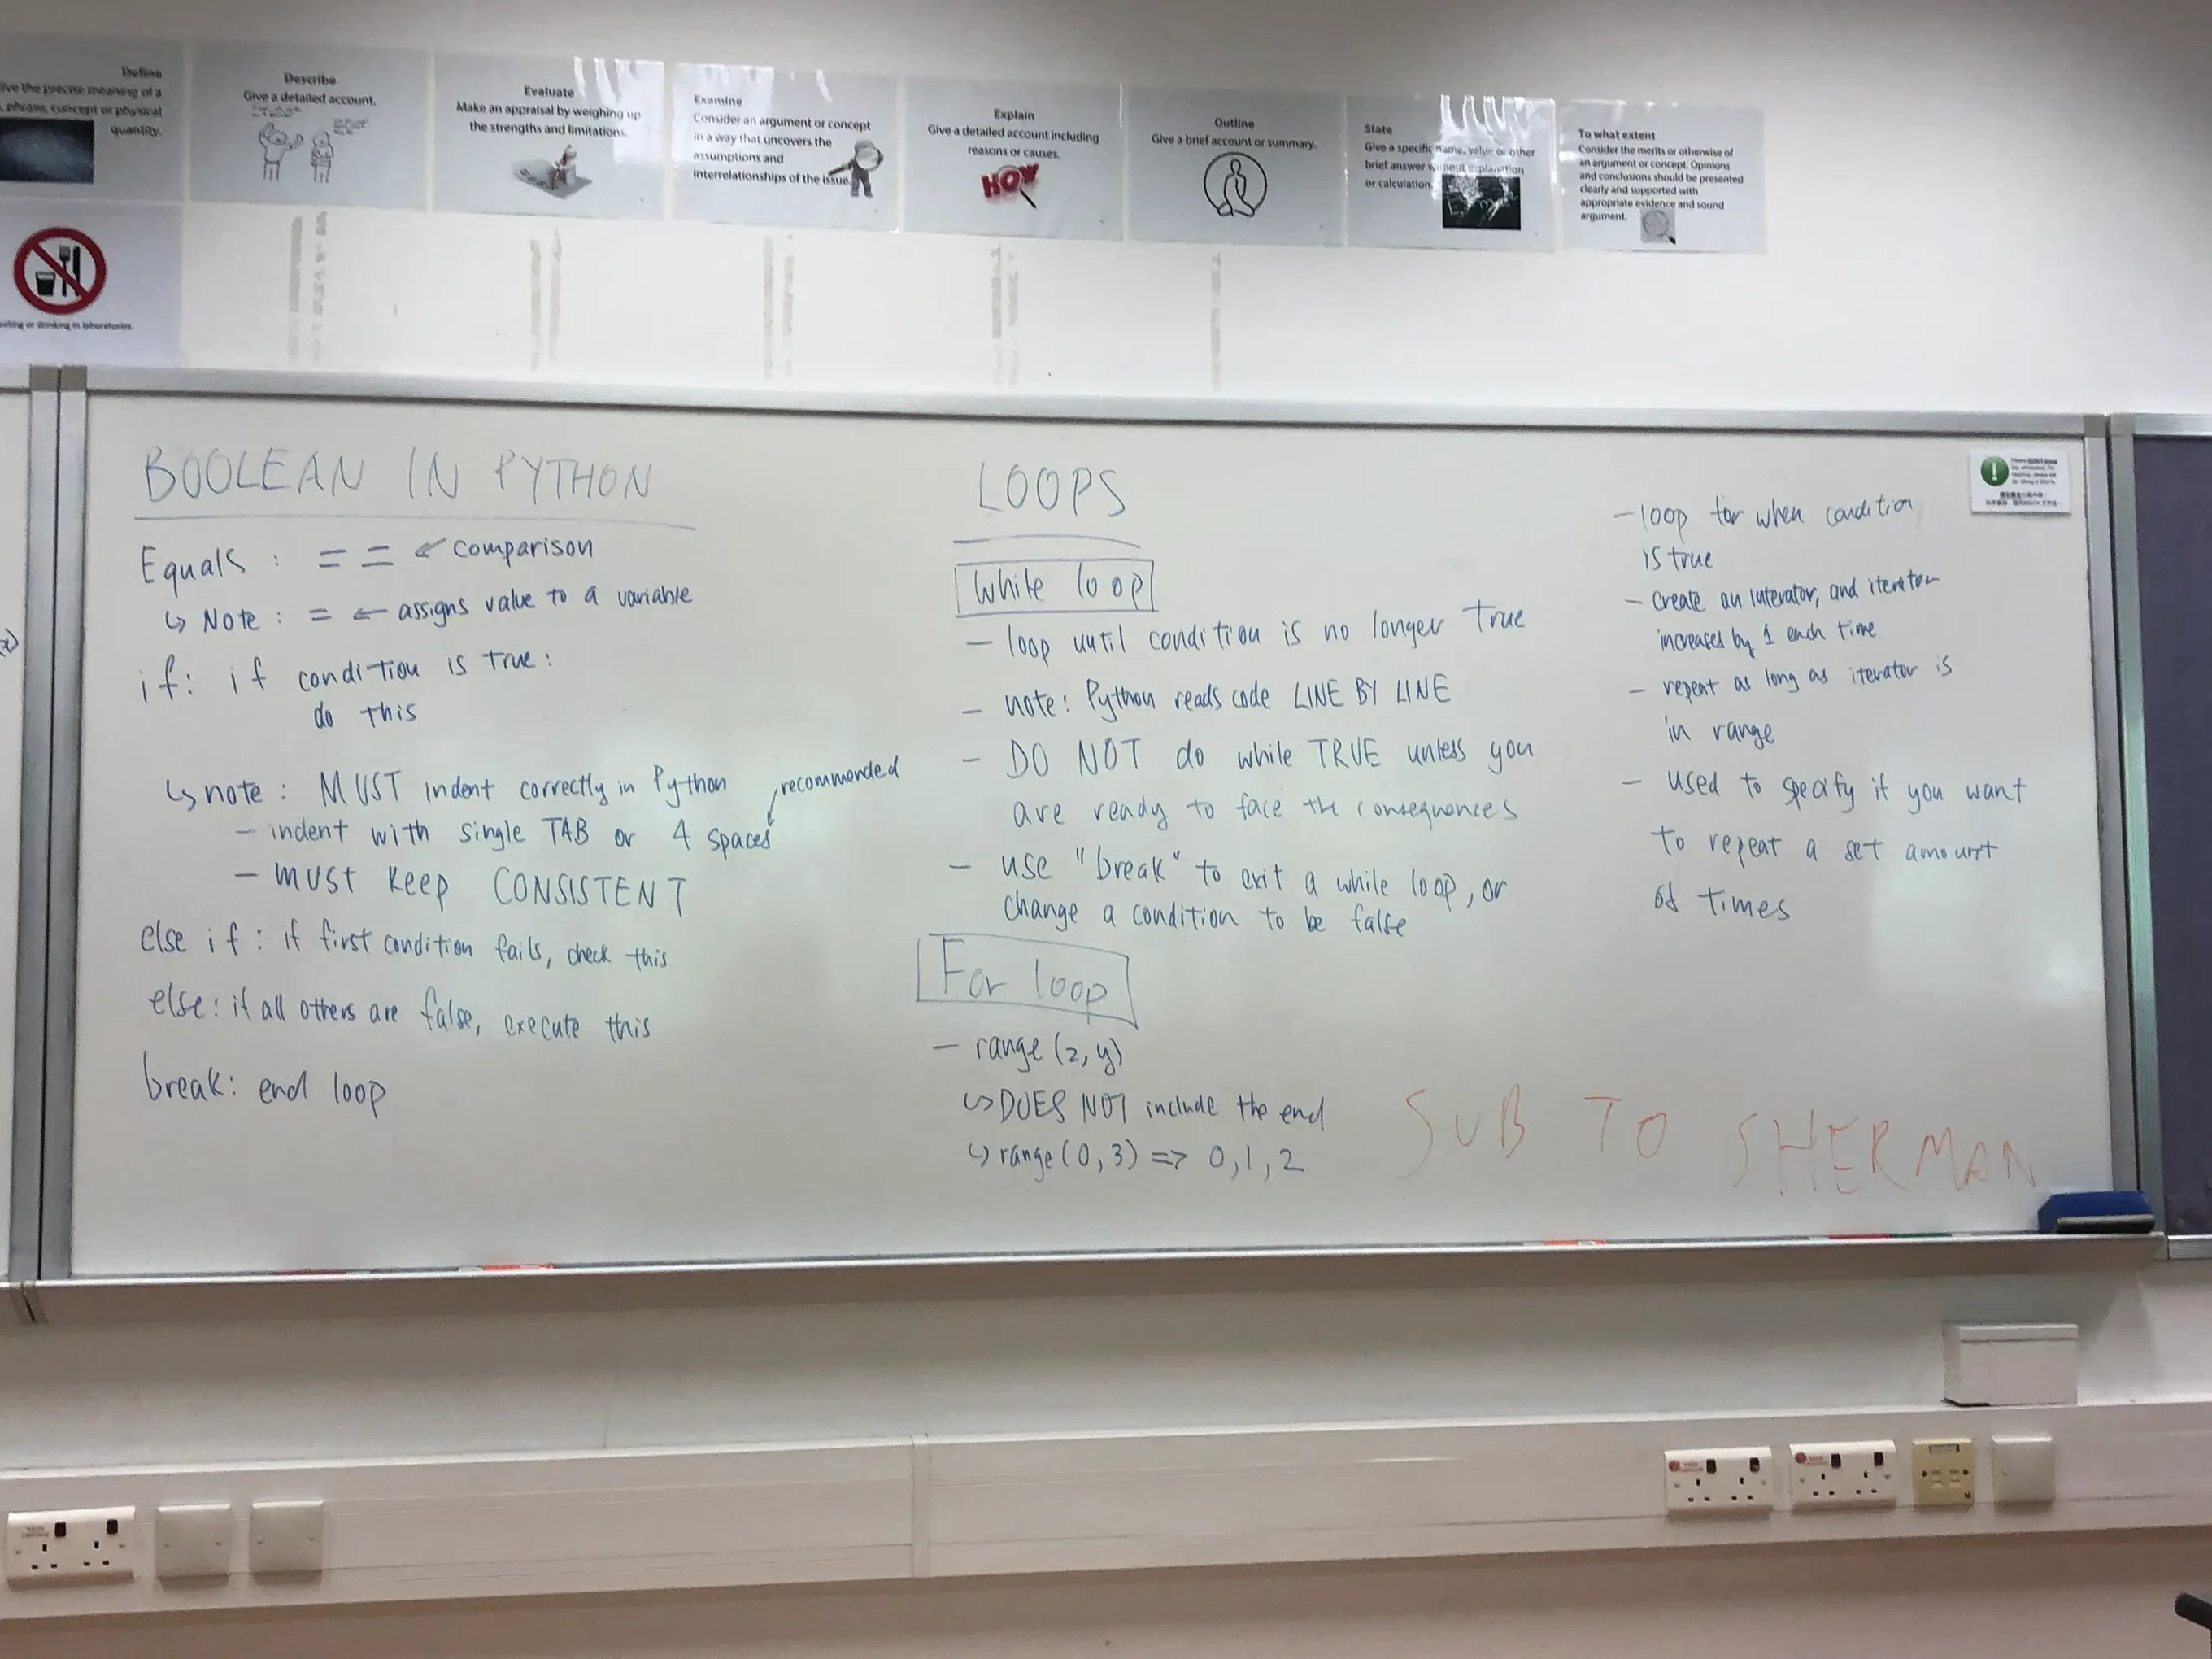 Define
ive the precise meaning of a
phrase, concept or physical
quantity.
Describe
Give a detailed account.
Evaluate
Make an appraisal by weighing up
the strengths and limitations.
Examine
Consider an argument or concept
in a way that uncovers the
assumptions and
interrelationships of the issue.
Explain
Give a detailed account including
reasons or causes.
HOW
Outline
Give a brief account or summary.
State
Give a specific name, value or other
brief answer without explanation
or calculation.
To what extent
Consider the merits or otherwise of
an argument or concept. Opinions
and conclusions should be presented
clearly and supported with
appropriate evidence and sound
argument.
eating or drinking in laboratories.
BOOLEAN IN PYTHON
Equals : == ← comparison
↳ Note : = ← assigns value to a variable
if: if condition is true:
do this
↳ note : MUST indent correctly in Python
recommended
- indent with single TAB or 4 spaces
- MUST keep CONSISTENT
else if : if first condition fails, check this
else: if all others are false, execute this
break: end loop
LOOPS
while loop
- loop until condition is no longer true
- note: Python reads code LINE BY LINE
- DO NOT do while TRUE unless you
are ready to face the consequences
- use "break" to exit a while loop, or
change a condition to be false
For loop
- range (z, y)
↳ DOES NOT include the end
↳ range (0, 3) => 0, 1, 2
- loop for when condition
is true
- create an interator, and iterator
increases by 1 each time
- repeat as long as iterator is
in range
- used to specify if you want
to repeat a set amount
of times
SUB TO SHERMAN